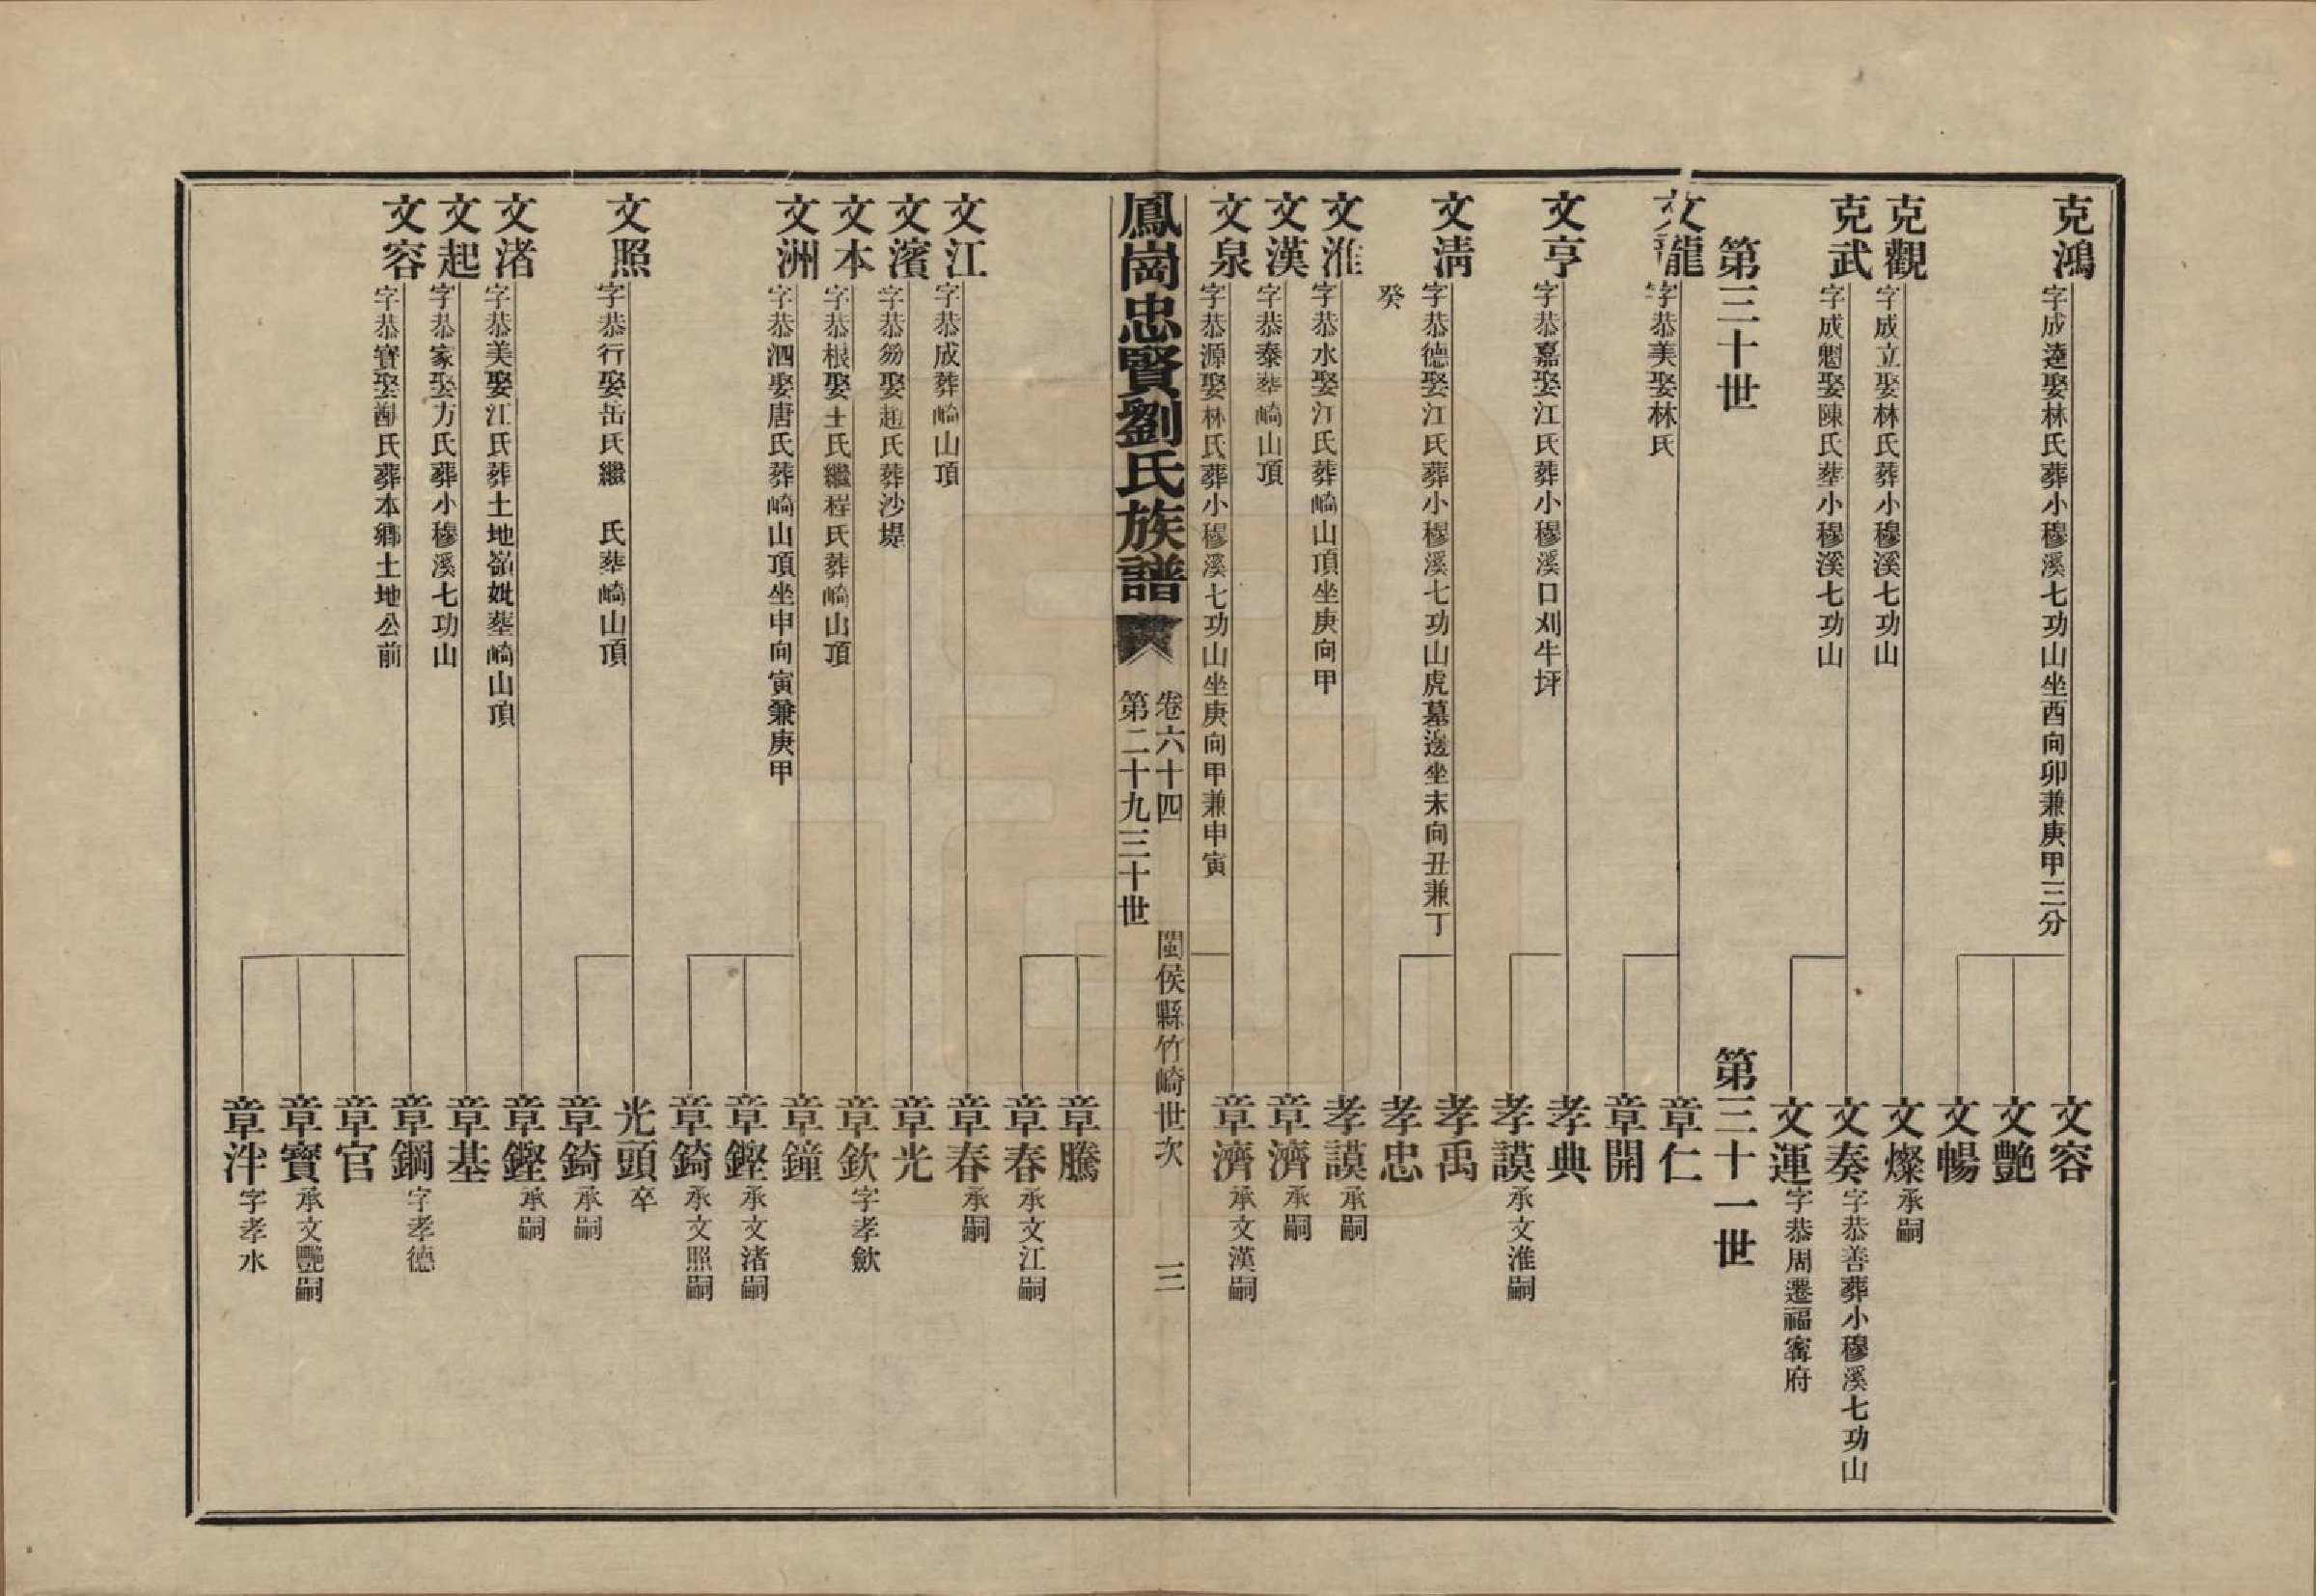 克鴻 字成逵娶林氏葬小穆溪七功山坐酉向卯兼庚甲三分
文容
文艷
文暢
克觀 字成立娶林氏葬小穆溪七功山
文燦 承嗣
克武 字成魁娶陳氏葬小穆溪七功山
文奏 字恭善葬小穆溪七功山
文運 字恭周遷福寗府
第三十世
第三十一世
文龍 字恭美娶林氏
章仁
章開
文亨 字恭嘉娶江氏葬小穆溪口刈牛坪
孝典
孝謨 承文淮嗣
文清 字恭德娶江氏葬小穆溪七功山虎墓邊坐末向丑兼丁
癸
孝禹
孝忠
文淮 字恭水娶江氏葬崎山頂坐庚向甲
孝謨 承嗣
文漢 字恭泰葬崎山頂
章濟 承嗣
文泉 字恭源娶林氏葬小穆溪七功山坐庚向甲兼申寅
章濟 承文漢嗣
鳳崗忠賢劉氏族譜
卷六十四
第二十九三十世
閩侯縣竹崎世次
三
章騰
章春 承文江嗣
文江 字恭成葬崎山頂
章春 承嗣
文濱 字恭娶趙氏葬沙堤
章光
文本 字恭根娶王氏繼程氏葬崎山頂
章欽 字孝歛
文洲 字恭泗娶唐氏葬崎山頂坐申向寅兼庚甲
章鐘
章鏗 承文渚嗣
章錡 承文照嗣
文照 字恭行娶岳氏繼 氏葬崎山頂
光頭 卒
章錡 承嗣
文渚 字恭美娶江氏葬土地嶺妣葬崎山頂
章鏗 承嗣
文起 字恭家娶方氏葬小穆溪七功山
章基
文容 字恭寶娶謝氏葬本鄉土地公前
章鋼 字孝德
章官
章寶 承文艷嗣
章泮 字孝水